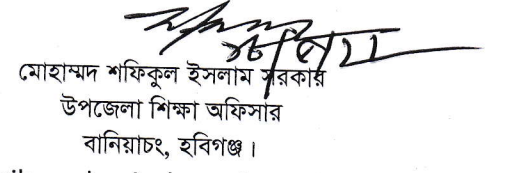 মোহাম্মদ শফিকুল ইসলাম সরকার
উপজেলা শিক্ষা অফিসার
বানিয়াচং, হবিগঞ্জ ।